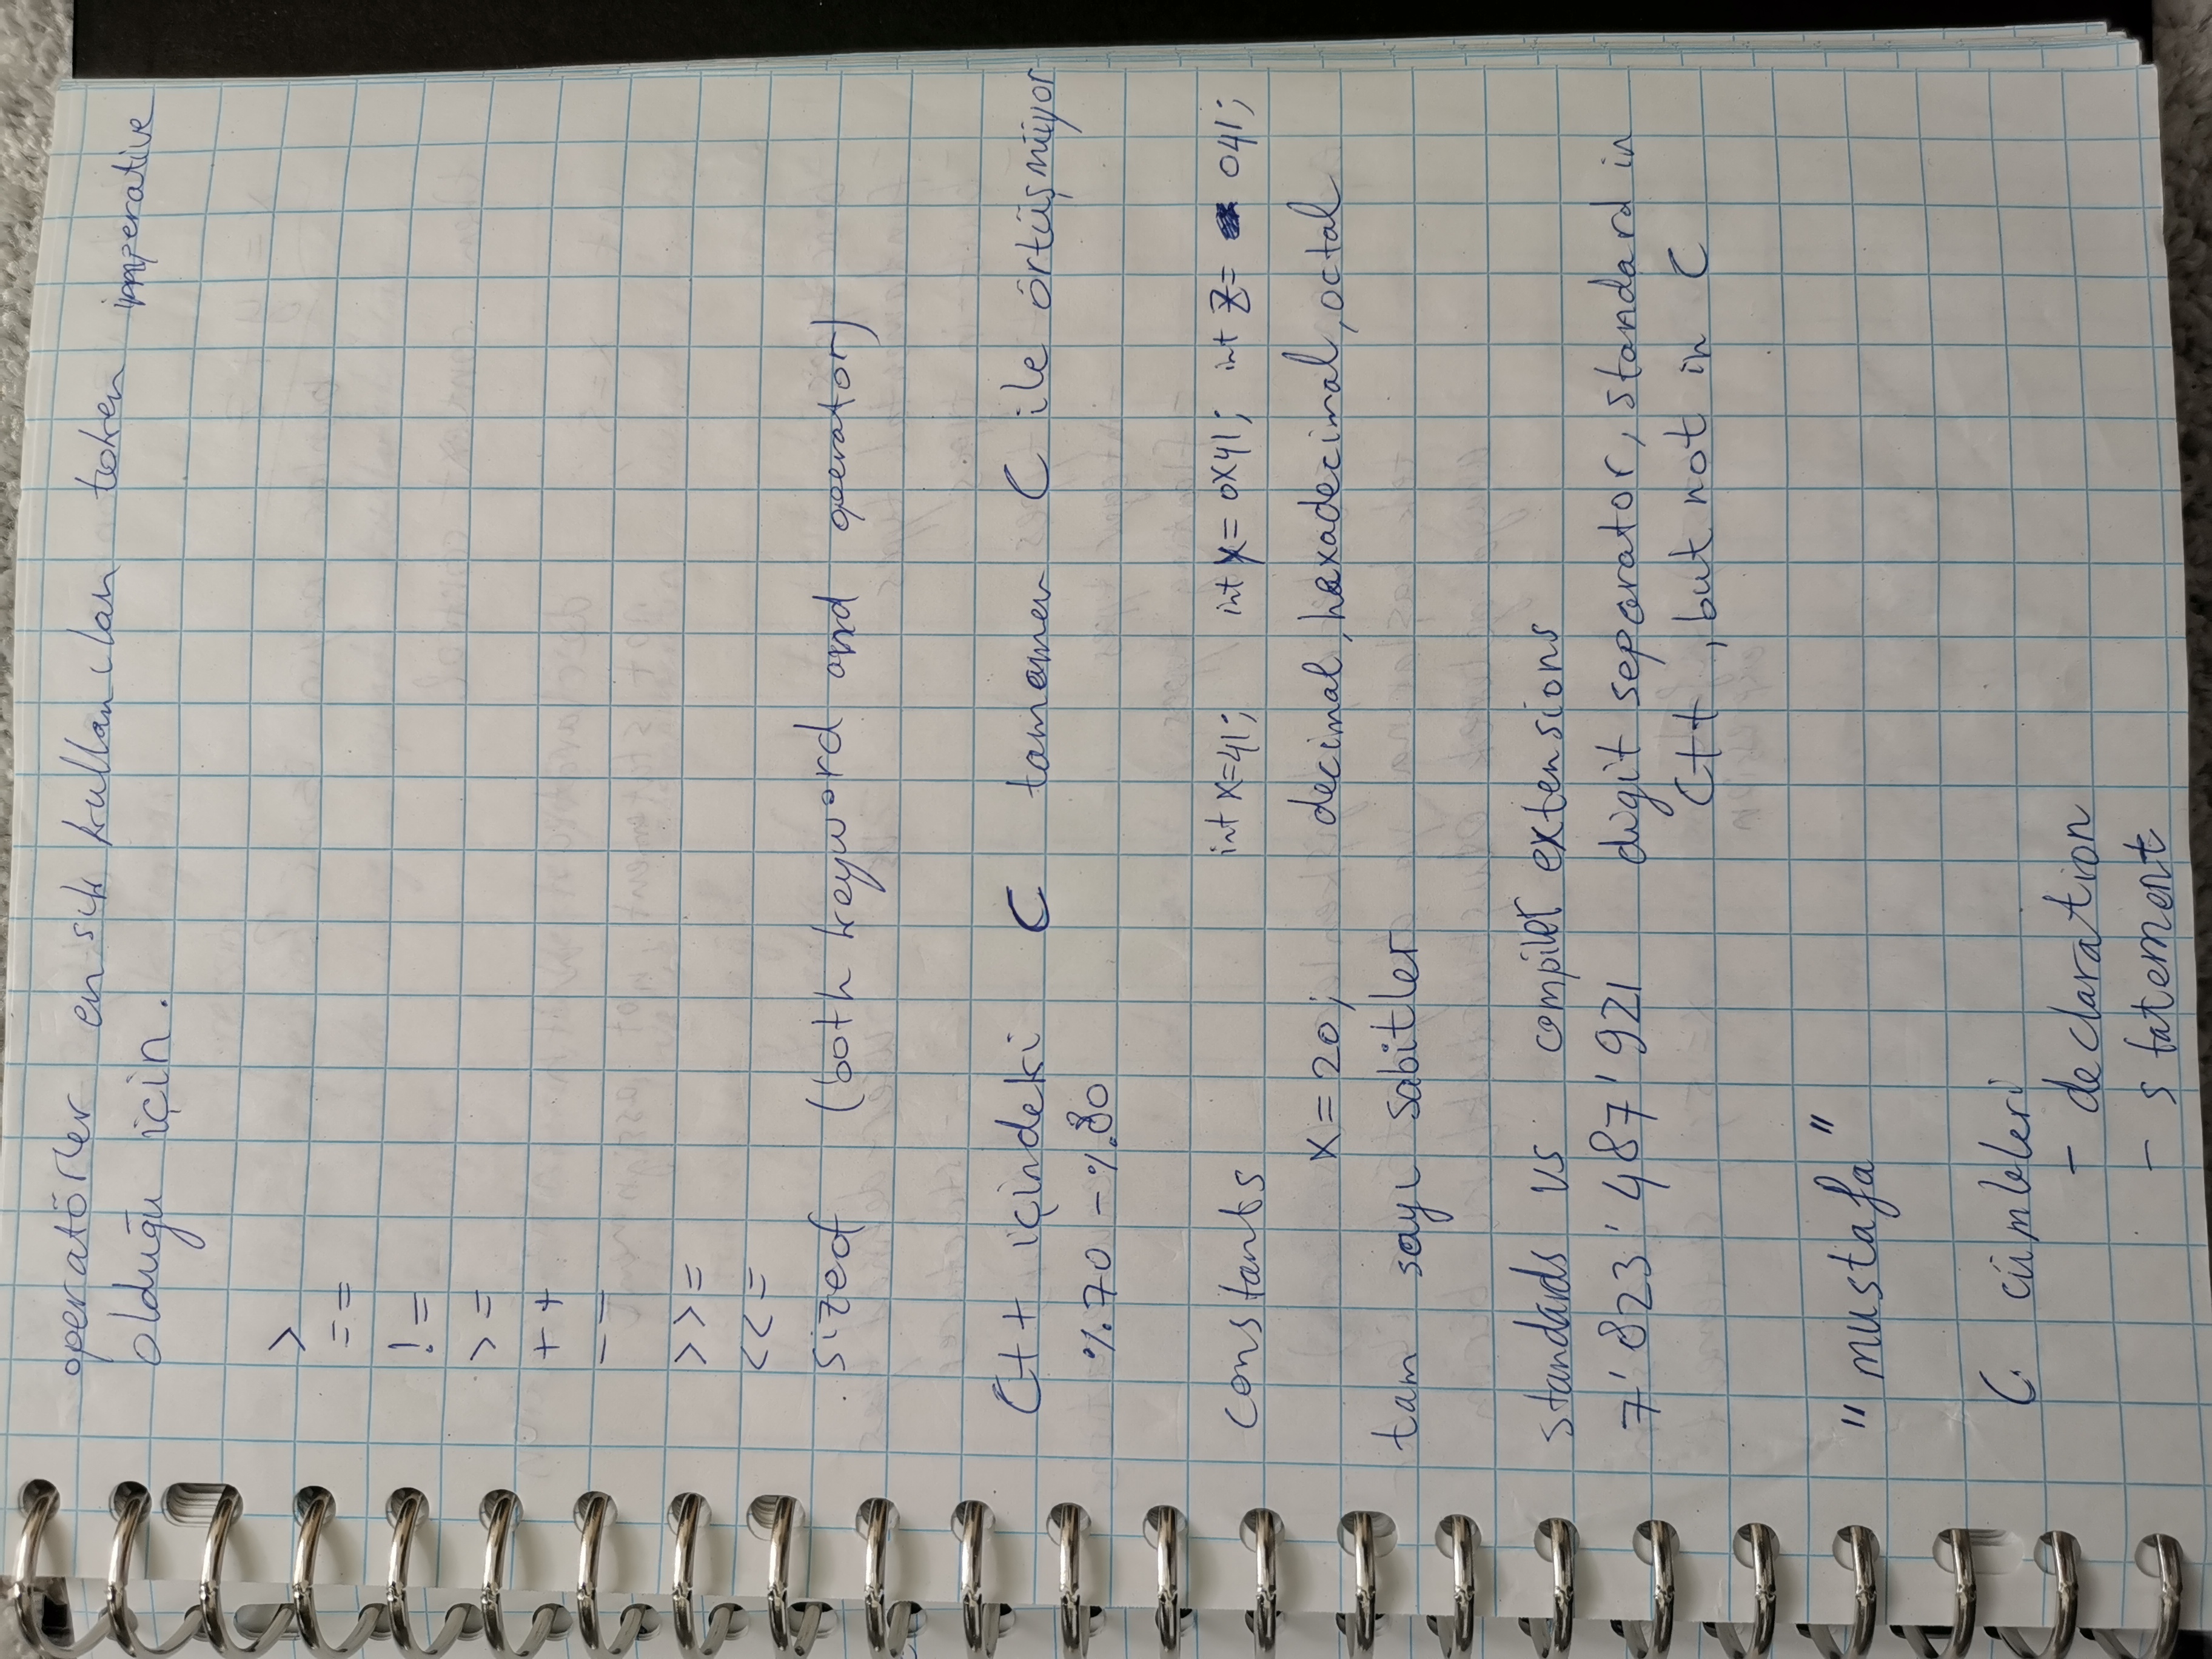 operatörler en sık kullanılan token imperative
olduğu için.
>
==
!=
>=
++
--
>>=
<<=
sizeof (both keyword and operator)
C++ içindeki C tamamen C ile örtüşmüyor
%70 - %80
constants int x=41; int y= 0x41; int z= 041;
x = 20; decimal, hexadecimal, octal
tam sayı sabitler
standards vs compiler extensions
7'823'487'921 digit separator, standard in
C++, but not in C
"mustafa"
C cümleleri
- declaration
- statement